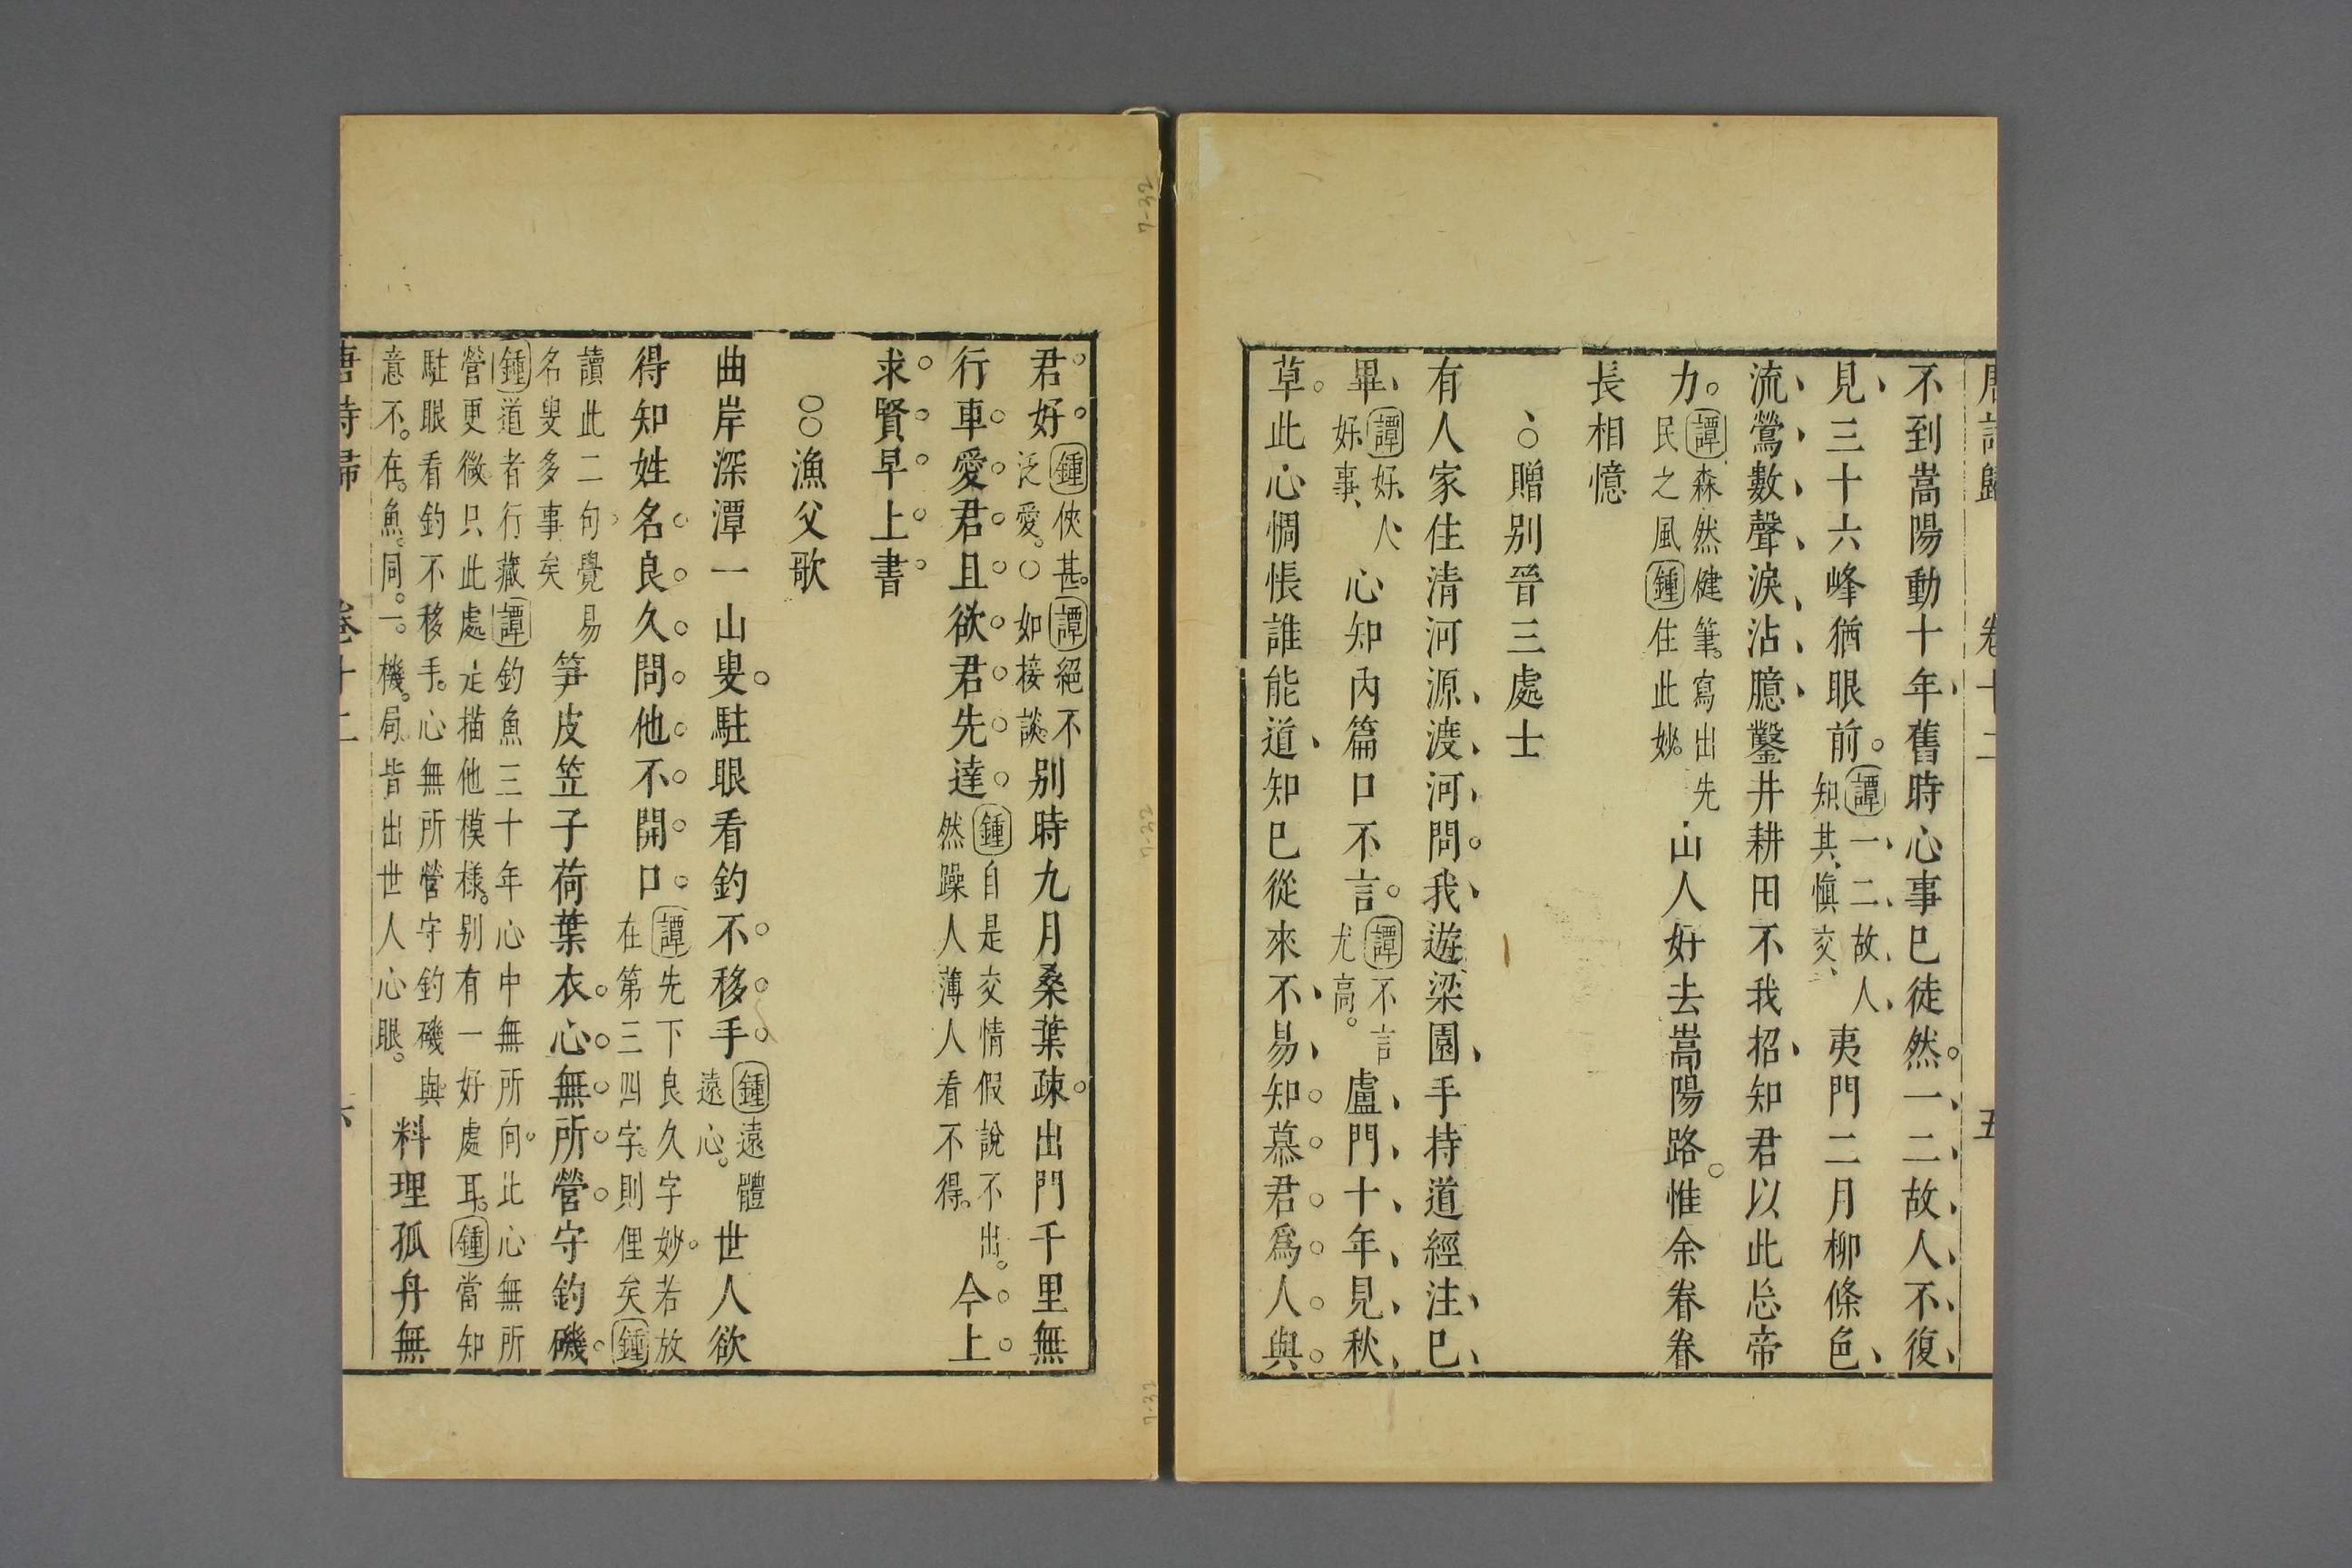 唐詩歸 卷十二 五
不到嵩陽動十年舊時心事已徒然一二故人不復
見三十六峰猶眼前譚一二故人知其慎交夷門二月柳條色
流鶯數聲淚沾臆鑿井耕田不我招知君以此忘帝
力譚森然健筆寫出先民之風鍾住此妙山人好去嵩陽路惟余眷眷
長相憶
○贈別晉三處士
有人家住清河源渡河問我遊梁園手持道經注已
畢譚好人好事心知內篇口不言譚不言尤高盧門十年見秋
草此心惆悵誰能道知己從來不易知慕君爲人與
君好鍾俠甚譚絕不泛愛○如接談別時九月桑葉疎出門千里無
行車愛君且欲君先達鍾自是交情假說不出然躁人薄人看不得今上
求賢早上書
○○漁父歌
曲岸深潭一山叟駐眼看釣不移手鍾遠體遠心世人欲
得知姓名良久問他不開口譚先下良久字妙若放在第三四字則俚矣鍾
讀此二句覺易名叟多事矣笋皮笠子荷葉衣心無所營守釣磯
鍾道者行藏譚釣魚三十年心中無所向此心無所
營更微只此處走描他模樣別有一好處耳鍾當知
駐眼看釣不移手心無所營守釣磯與
意不在魚同一機局皆出世人心眼料理孤舟無
唐詩歸 卷十二 六